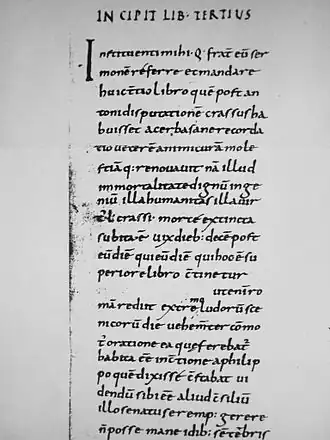 INCIPIT LIB· TERTIUS
Instituenti mihi· Q· frat̄ eū ser
monē referre et mandare
huic t̄tio libro quē post an
toni disputationē crassus ha
buisset acerba sane recorda
tio ueterē animi curā mole
stiāq; renouauit nā illud
immortalitate dignū inge
niū illa humanitas illa uir
crassi morte extincta
subita ē· uix dieb; decē post
eū diē qui eū diē qui hoc ē su
periore libro c̄tinetur
ut enī ro
mā rediit extremo ludorū sce
nicorū die uehem̄t̄ c̄mo
oratione ea que ferebat̄
habita ēē in c̄tione a philip
po quē dixissē c̄stabat ui
dendū sibi ēē aliud c̄siliū
illo senatu se remp· gerere
n̄ posse mane idib; septēbris